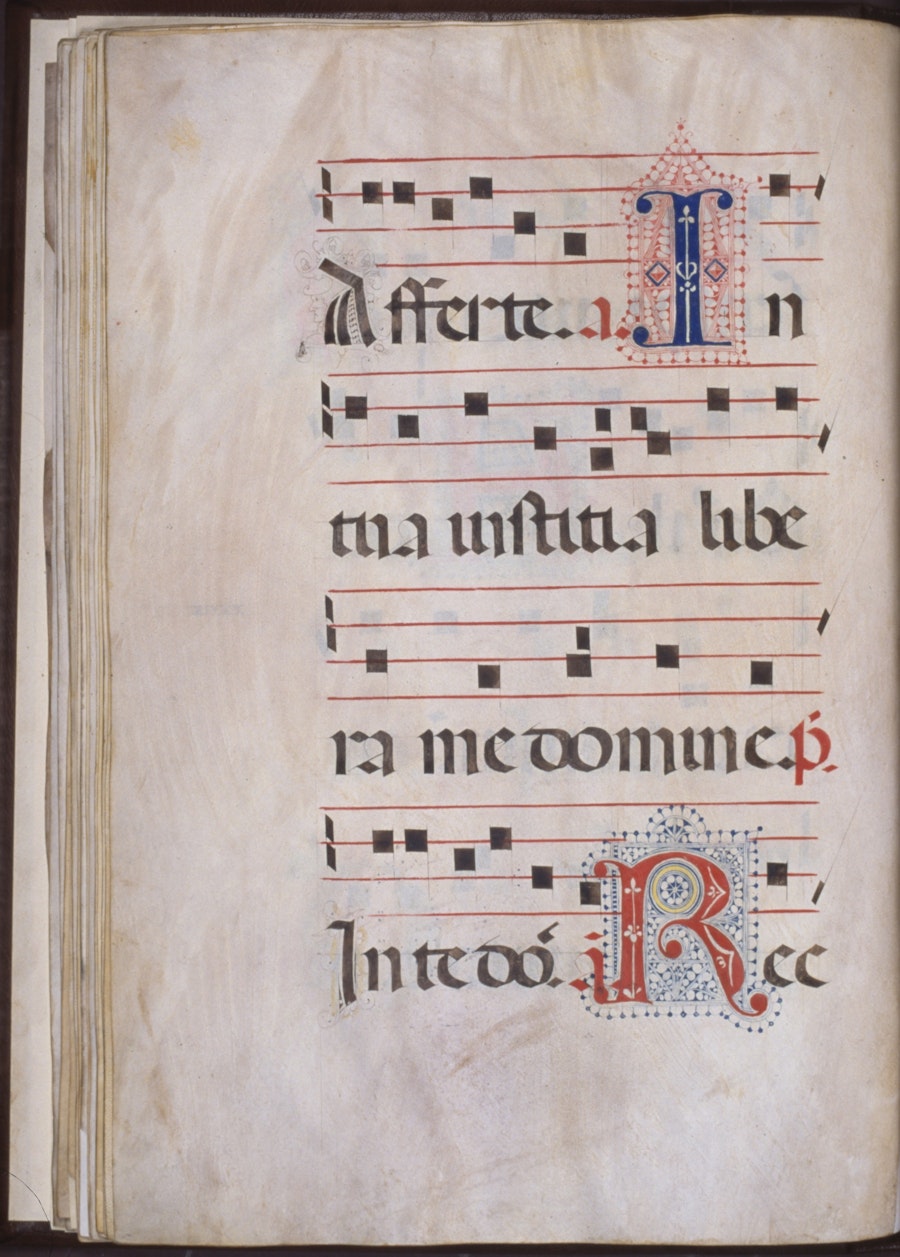 Afferte. a. In
tua iustitia libe
ra me domine. p̄.
In te dō. a. Rec